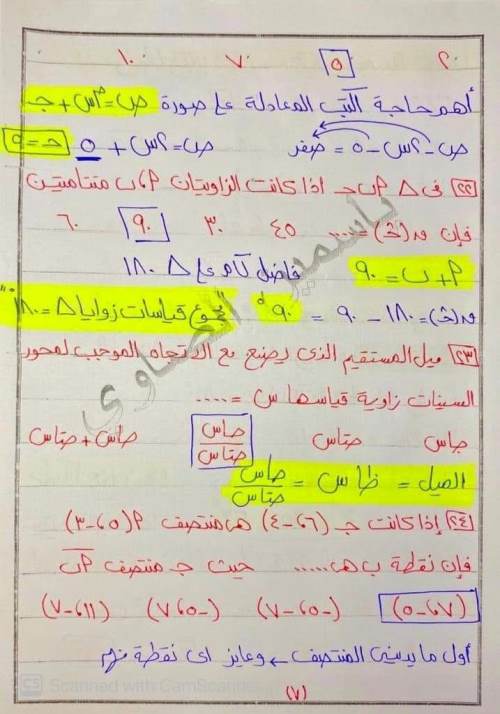 ٢٠ ٥ ٧٠ ١٠
أهم حاجة اكتب المعادلة على صورة ص = م س + جـ
ص - ٢س - ٥ = صفر ص = ٢س + ٥ جـ = ٥
٢٢ فى △ أ ب جـ اذا كانت الزاويتان أ ، ب متتامتين
فإن ق (جـ) = .... ٤٥ ٣٠ ٩٠ ٦٠
أ + ب = ٩٠ فاضل كام على △ ١٨٠
ق (جـ) = ١٨٠ - ٩٠ = ٩٠° مجموع قياسات زوايا △ = ١٨٠°
٢٣ ميل المستقيم الذى يصنع مع الاتجاه الموجب لمحور
السينات زاوية قياسها س = ....
جاس جتاس جاس/جتاس جاس + جتاس
الميل = ظا س = جاس/جتاس
٢٤ إذا كانت جـ (٦ ، -٤) هى منتصف أ (٥ ، -٣)
فإن نقطة ب هى ..... حيث جـ منتصف أ ب
(٧ ، -٥) (-٥ ، -٧) (-٥ ، ٧) (١١ ، -٧)
أول ما يدينى المنتصف ← وعايز اى نقطة منهم
(٧)
CS Scanned with CamScanner
ياسمين الصاوي